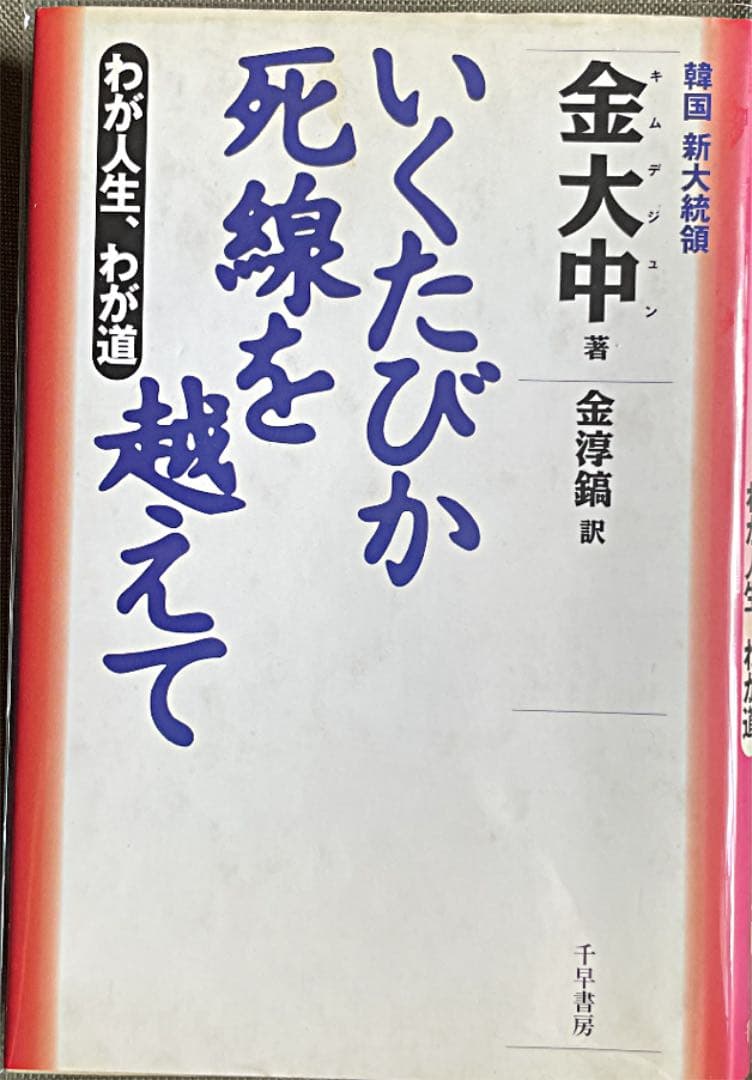 韓国 新大統領
キムデジュン
金大中 著
金淳鎬 訳
いくたびか
死線を
越えて
わが人生、わが道
千早書房
わが人生 わが道